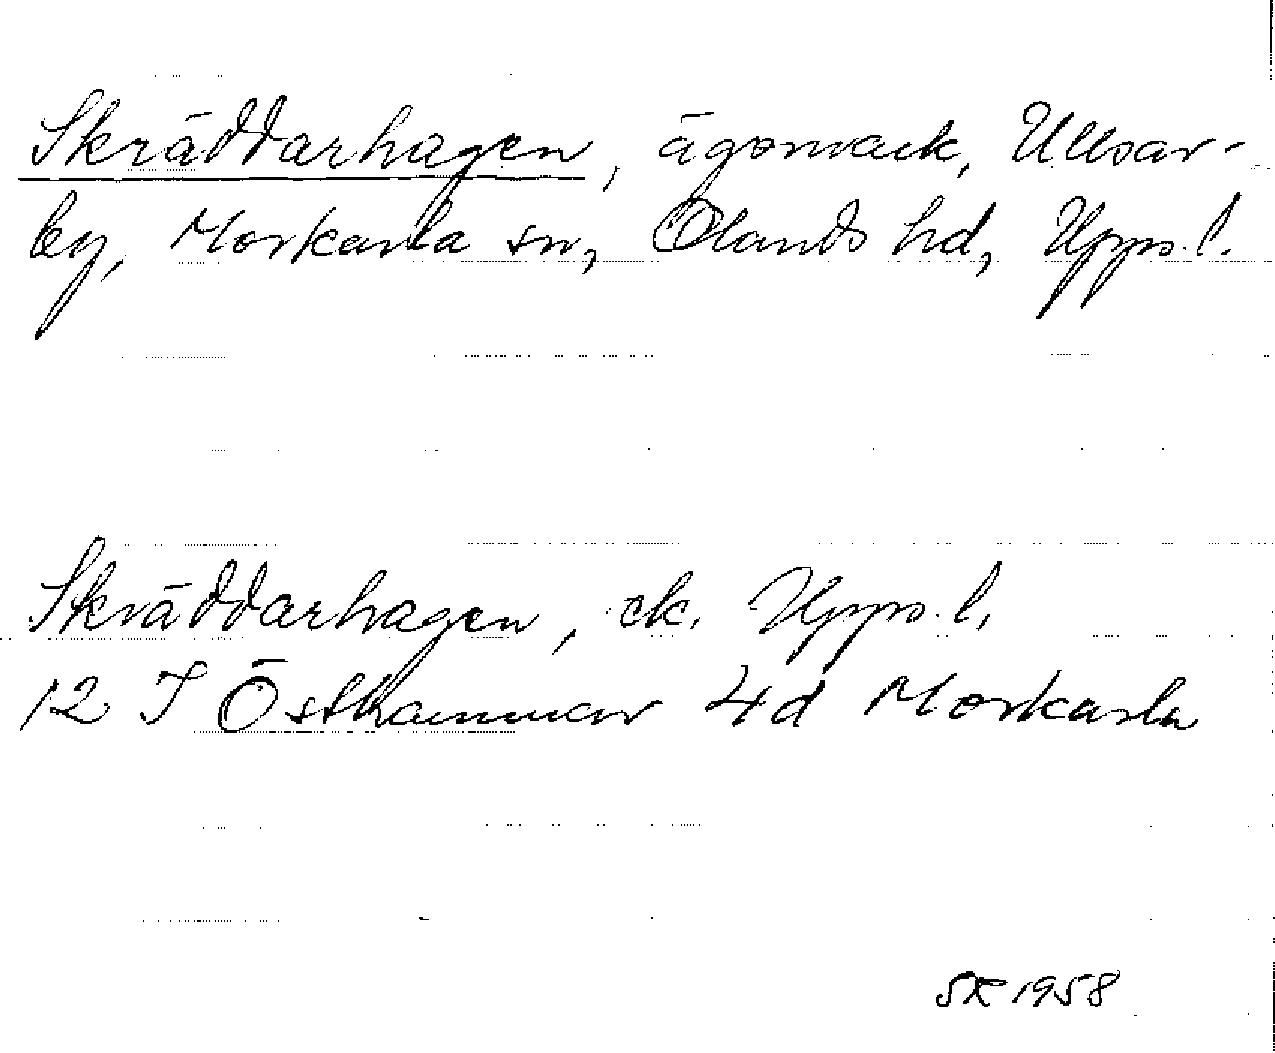 Skräddarhagen, ägomark, Ullsar-
by, Morkarla sn, Olands hd, Upps. l.
Skräddarhagen, ek. Upps. l.
12 I Östhammar 4d Morkarla
SK 1958